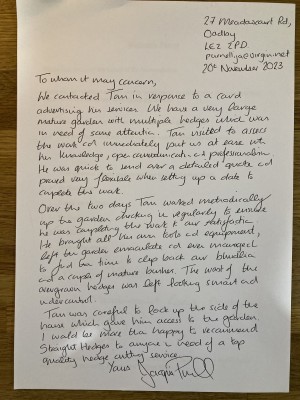 27 Meadowcourt Rd,
Oadby
LE2 2PD.
purnellja@virgin.net
20th November 2023
To whom it may concern,
We contacted Tam in response to a card
advertising his services. We have a very large
mature garden with multiple hedges which was
in need of some attention. Tam visited to assess
the work and immediately put us at ease with
his knowledge, open communication and professionalism
He was quick to send over a detailed quote and
proved very flexible when setting up a date to
complete the work.
Over the two days Tam worked methodically
up the garden checking in regularly to ensure
he was completing the work to our satisfaction
He brought all his own tools and equipment,
left the garden immaculate and even managed
to find the time to clip back our buddleia
and a couple of mature bushes. The most of the
overgrown hedges was left looking smart and
under control.
Tam was careful to lock up the side of the
house which gave him access to the garden
I would be more than happy to recommend
Straight Hedges to anyone in need of a top
quality hedge cutting service.
Yours